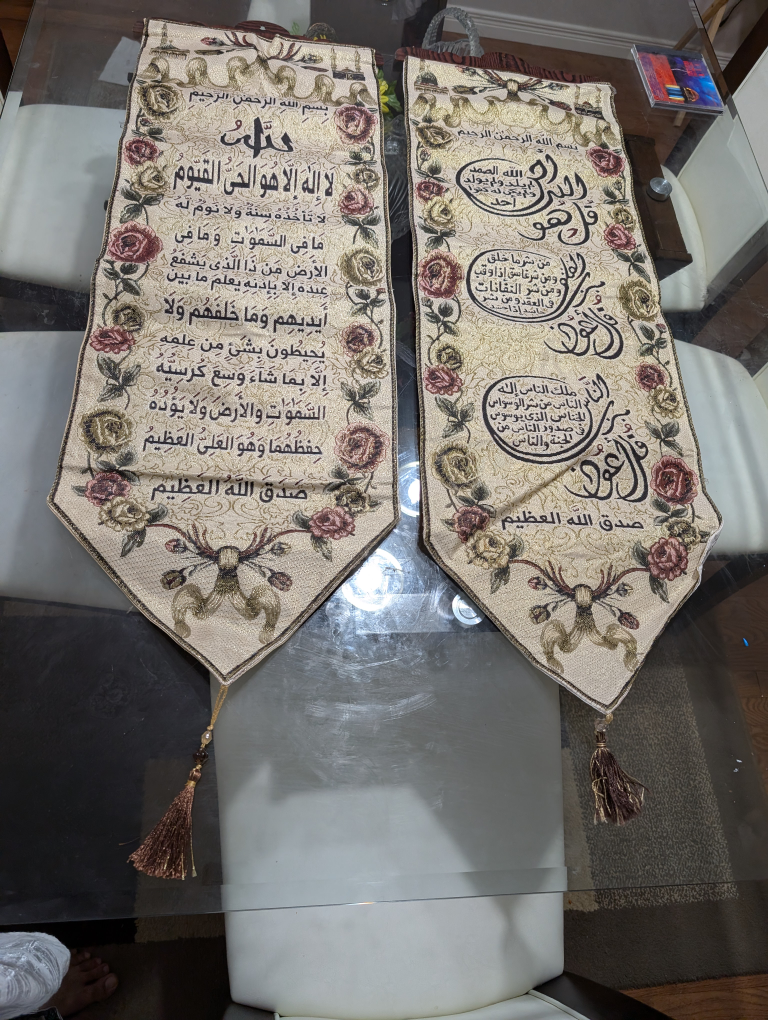 بسم الله الرحمن الرحيم
الله
لا إله إلا هو الحي القيوم
لا تأخذه سنة ولا نوم له
ما في السموات وما في
الأرض من ذا الذي يشفع
عنده إلا بإذنه يعلم ما بين
أيديهم وما خلفهم ولا
يحيطون بشئ من علمه
إلا بما شاء وسع كرسيه
السموات والأرض ولا يؤده
حفظهما وهو العلي العظيم
صدق الله العظيم
بسم الله الرحمن الرحيم
قل هو الله أحد
الله الصمد
لم يلد ولم يولد
ولم يكن له كفوا
أحد
قل أعوذ برب الفلق
من شر ما خلق
ومن شر غاسق إذا وقب
ومن شر النفاثات
في العقد ومن شر
حاسد إذا حسد
قل أعوذ برب الناس
ملك الناس إله
الناس من شر الوسواس
الخناس الذي يوسوس
في صدور الناس من
الجنة والناس
صدق الله العظيم